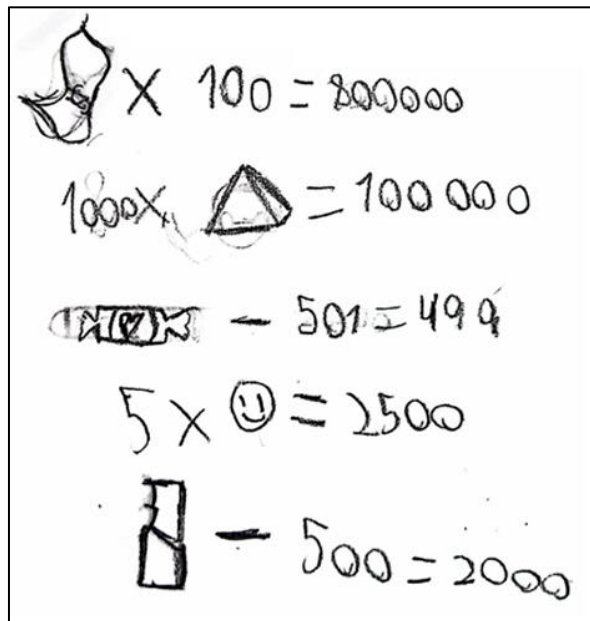 X 100 = 800000
1000 X = 100 000
- 501 = 499
5 X = 2500
- 500 = 2000